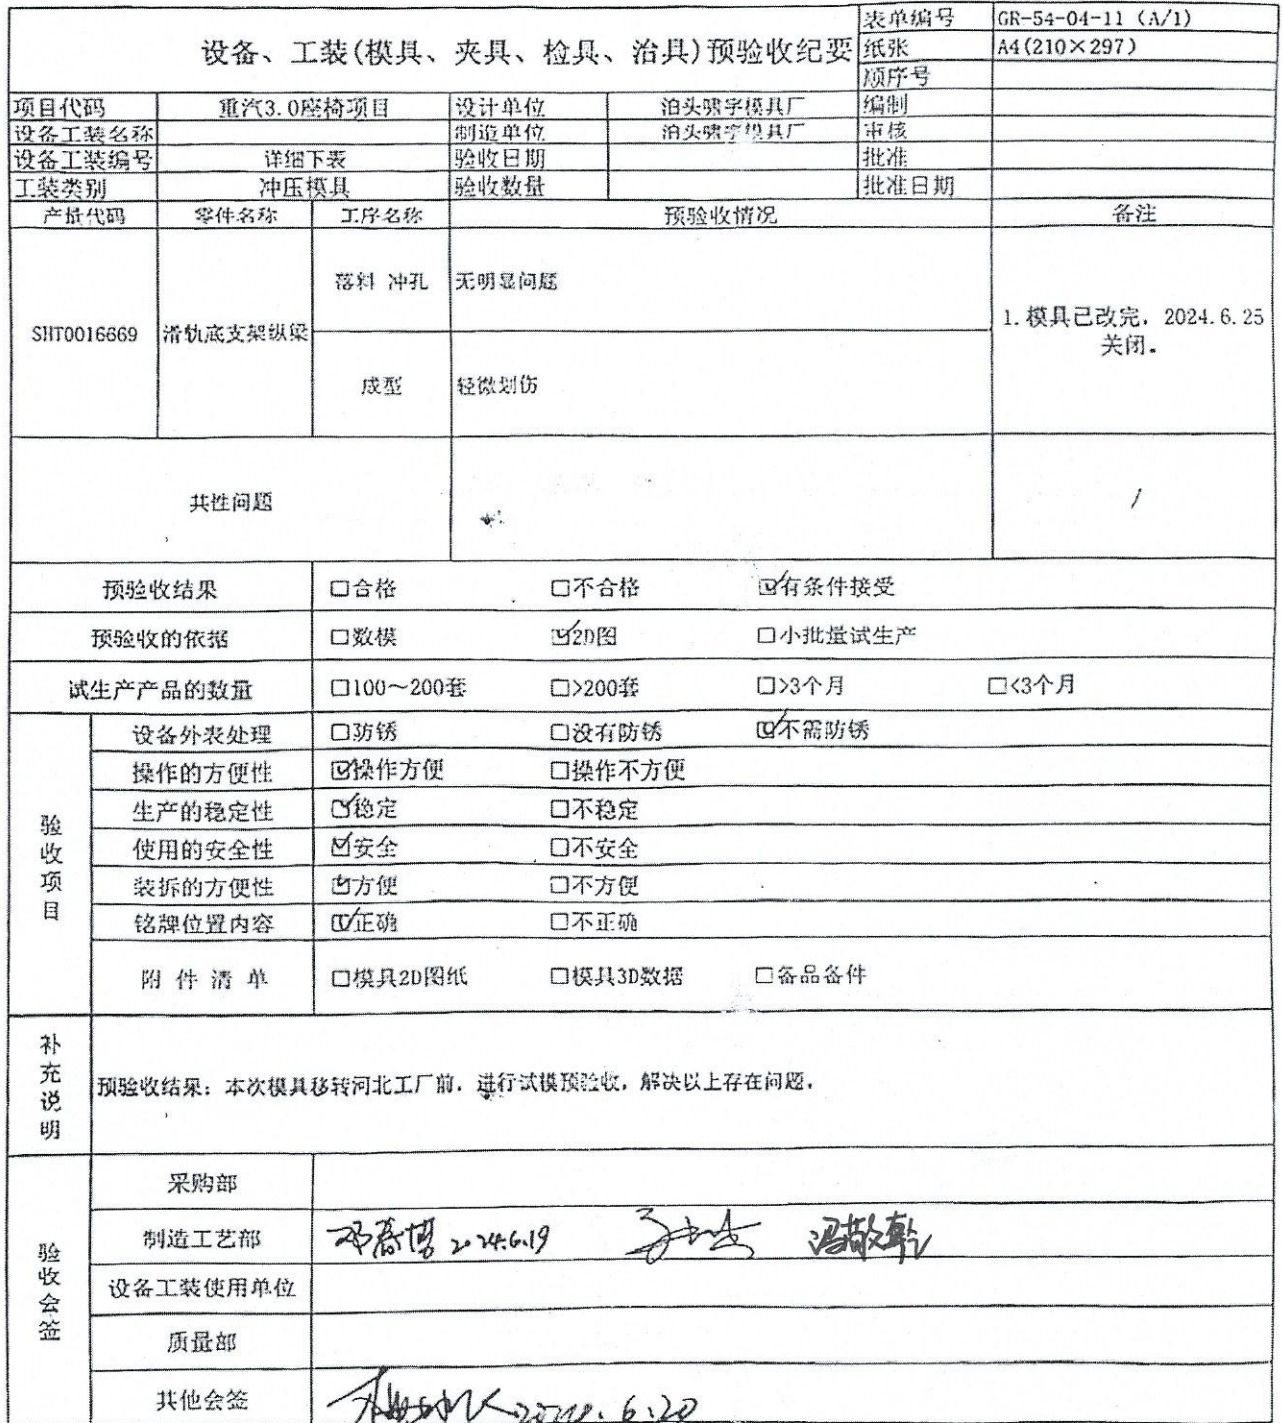 设备、工装(模具、夹具、检具、治具)预验收纪要
表单编号 GR-54-04-11 (A/1)
纸张 A4(210×297)
顺序号
项目代码 重汽3.0座椅项目 设计单位 泊头啸宇模具厂 编制
设备工装名称 制造单位 泊头啸宇模具厂 审核
设备工装编号 详细下表 验收日期 批准
工装类别 冲压模具 验收数量 批准日期
产批代码 零件名称 工序名称 预验收情况 备注
落料 冲孔 无明显问题
SHT0016669 滑轨底支架纵梁
1.模具已改完，2024.6.25
关闭。
成型 轻微划伤
共性问题 /
预验收结果 □合格 □不合格 ☑有条件接受
预验收的依据 □数模 ☑2D图 □小批量试生产
试生产产品的数量 □100～200套 □>200套 □>3个月 □<3个月
验收项目
设备外表处理 □防锈 □没有防锈 ☑不需防锈
操作的方便性 ☑操作方便 □操作不方便
生产的稳定性 ☑稳定 □不稳定
使用的安全性 ☑安全 □不安全
装拆的方便性 ☑方便 □不方便
铭牌位置内容 ☑正确 □不正确
附 件 清 单 □模具2D图纸 □模具3D数据 □备品备件
补充说明
预验收结果：本次模具移转河北工厂前，进行试模预验收，解决以上存在问题，
验收会签
采购部
制造工艺部 2024.6.19
设备工装使用单位
质量部
其他会签 2024.6.20